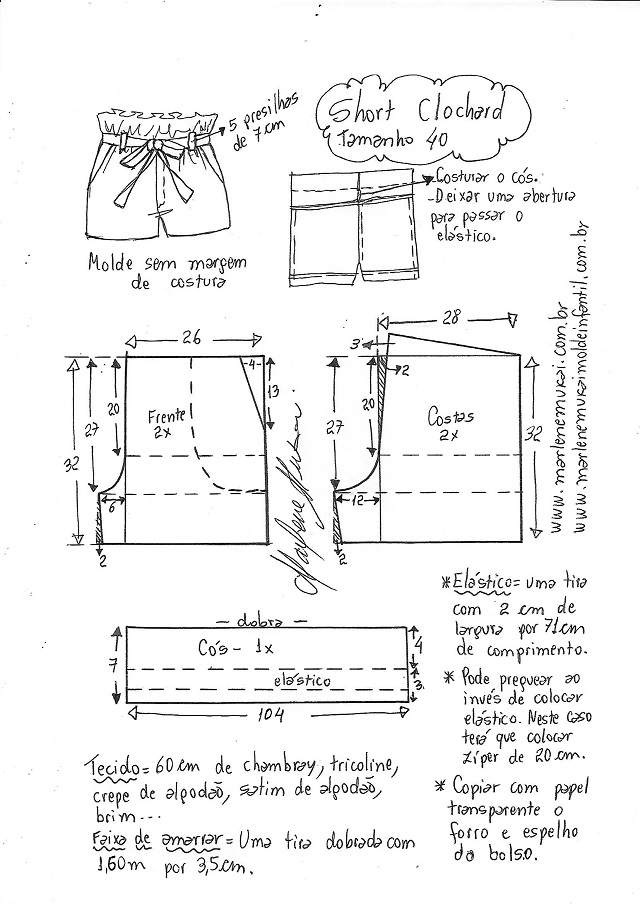 Short Clochard
Tamanho 40
5 presilhas
de 7cm
Costurar o cós.
-Deixar uma abertura
para passar o
elástico.
Molde sem margem
de costura
www.marlenemukai.com.br
www.marlenemukaimoldeinfantil.com.br
26
4
13
20
27
32
Frente
2x
6
2
28
3
2
20
27
32
Costas
2x
12
2
Marlene Mukai
- dobra -
Cós - 1x
elástico
7
4
3
104
*Elástico= uma tira
com 2 cm de
largura por 71cm
de comprimento.
* Pode preguear ao
invés de colocar
elástico. Neste caso
terá que colocar
zíper de 20 cm.
* Copiar com papel
transparente o
forro e espelho
do bolso.
Tecido= 60 cm de chambray, tricoline,
crepe de algodão, satim de algodão,
brim...
Faixa de amarrar= Uma tira dobrada com
1,60m por 3,5cm.